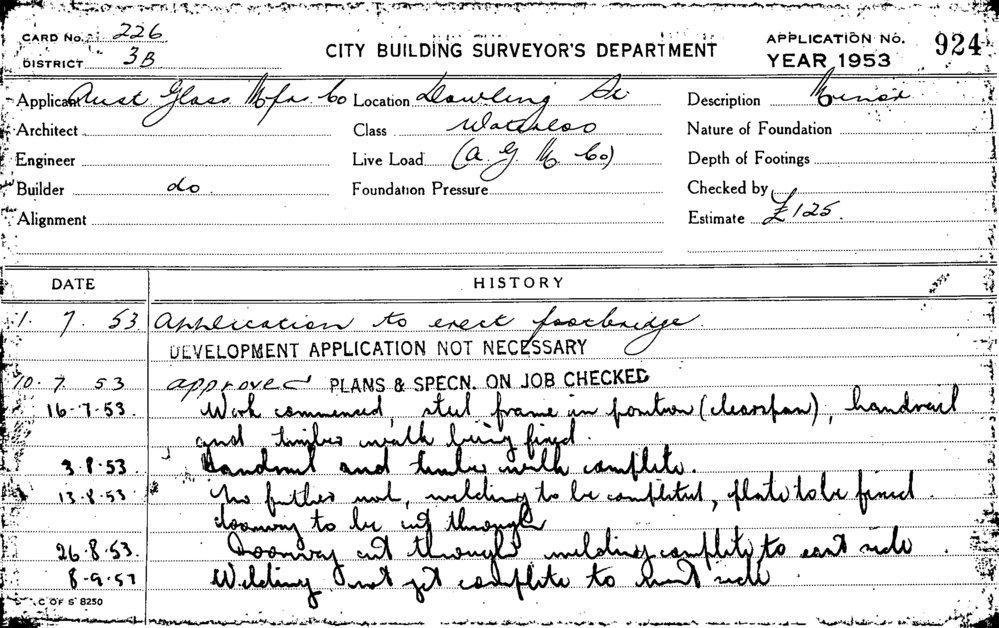 CARD No. 226
DISTRICT 3B
CITY BUILDING SURVEYOR'S DEPARTMENT
APPLICATION No. 924
YEAR 1953
Applicant Aust Glass Mfrs Co Location Dowling St Description Minor
Architect Class Waterloo Nature of Foundation
Engineer Live Load (A. G M Co) Depth of Footings
Builder do Foundation Pressure Checked by
Alignment Estimate £125.
DATE HISTORY
1. 7. 53 Application to erect footbridge.
DEVELOPMENT APPLICATION NOT NECESSARY
10. 7. 53 approved PLANS & SPECN. ON JOB CHECKED
16-7-53. Work commenced, steel frame in position (clearspan), handrail
and timber work being fixed.
3.8.53. Handrail and timber work complete.
13.8.53 No further work, welding to be completed, plate to be fixed.
doorway to be cut through
26.8.53. Doorway cut through welding complete to east side.
8-9-53 Welding not yet complete to west side
C OF S 8250